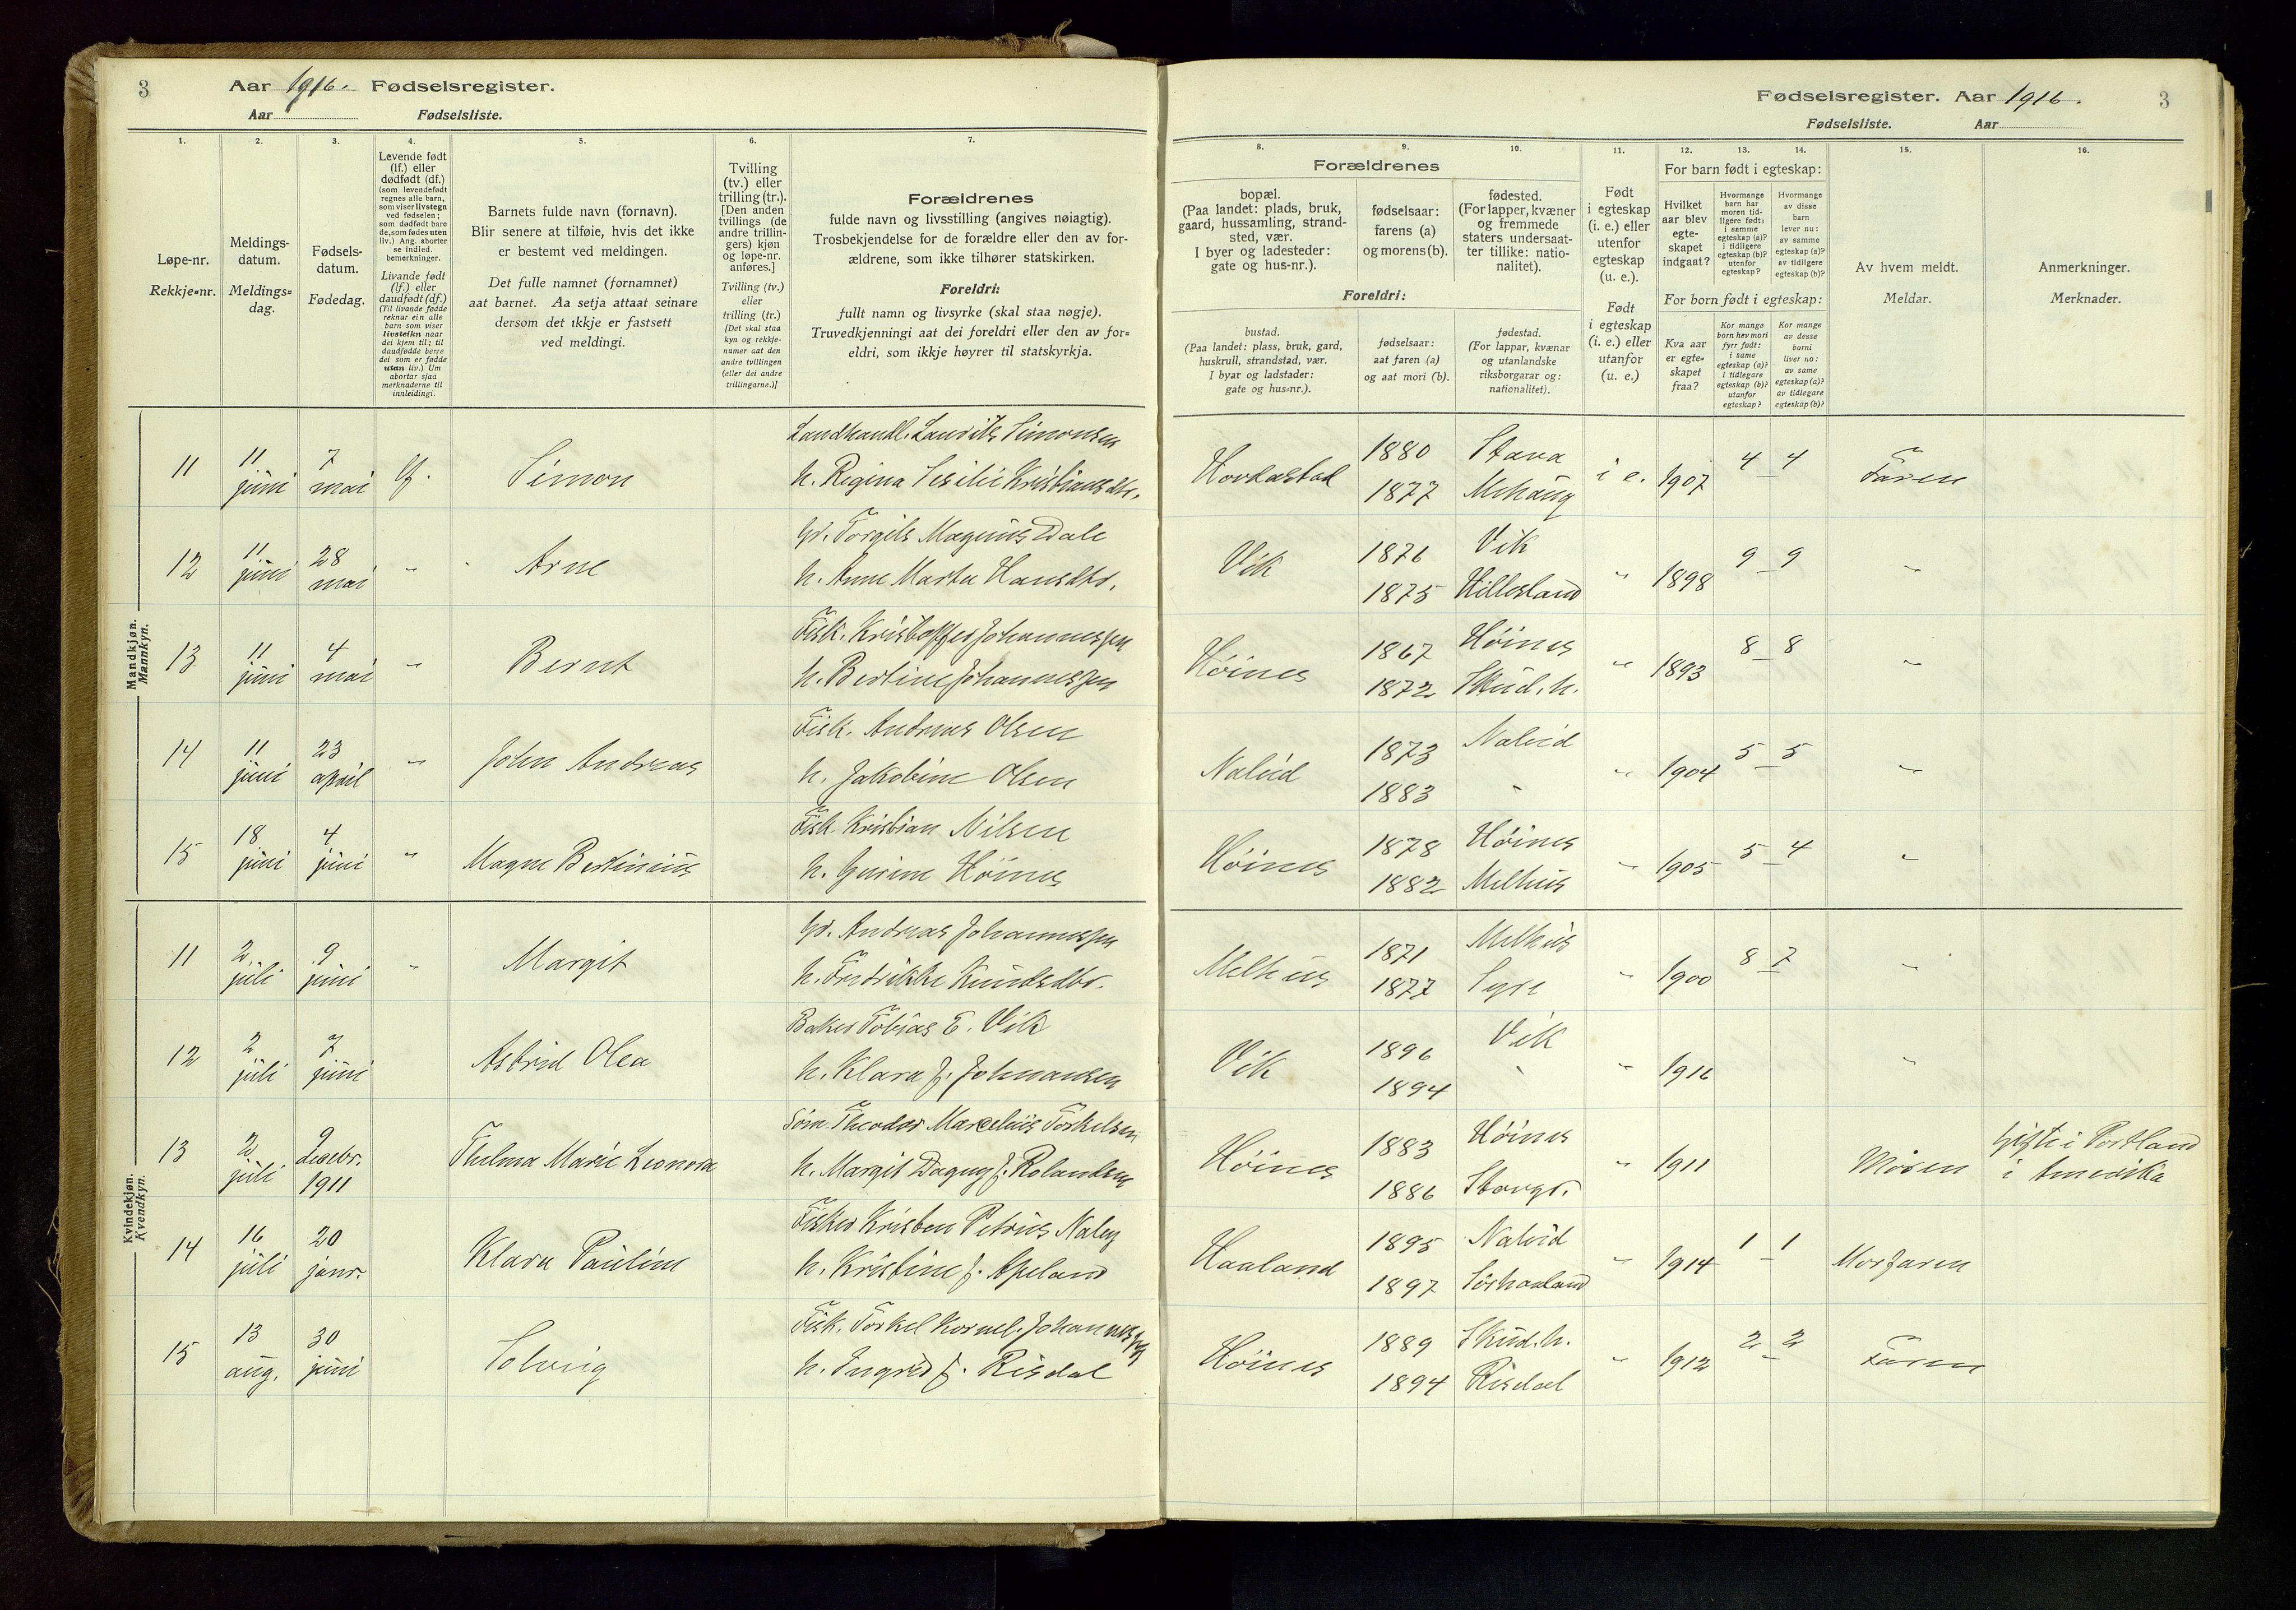 3
Aar 1916. Fødselsregister.
Aar Fødselsliste.
Fødselsregister. Aar 1916.
3
Fødselsliste. Aar
1.
Løpe-nr.
Rekkje=nr.
2.
Meldings-
datum.
Meldings=
dag.
3.
Fødsels-
datum.
Fødedag.
4.
Levende født
(lf.) eller
dødfødt (df.)
(som levendefødt
regnes alle barn,
som viser livstegn
ved fødselen;
som dødfødt bare
de, som fødes uten
liv.) Ang. aborter
se indled.
bemerkninger.
Livande født
(lf.) eller
daudfødt (df.)
(Til livande fødde
reknar ein alle
barn som viser
livsteikn naar
dei kjem til; til
daudfødde berre
dei som er fødde
utan liv.) Um
abortar sjaa
merknaderne til
innleidingi.
5.
Barnets fulde navn (fornavn).
Blir senere at tilføie, hvis det ikke
er bestemt ved meldingen.
Det fulle namnet (fornamnet)
aat barnet. Aa setja attaat seinare
dersom det ikkje er fastsett
ved meldingi.
6.
Tvilling
(tv.) eller
trilling (tr.).
[Den anden
tvillings (de
andre trillin-
gers) kjøn
og løpe-nr.
anføres.]
Tvilling (tv.)
eller
trilling (tr.)
[Det skal staa
kyn og rekkje-
numer aat den
andre tvillingen
(eller dei andre
trillingarne.)]
7.
Forældrenes
fulde navn og livsstilling (angives nøiagtig).
Trosbekjendelse for de forældre eller den av for-
ældrene, som ikke tilhører statskirken.
Foreldri:
fullt namn og livsyrke (skal staa nøgje).
Truvedkjenningi aat dei foreldri eller den av for=
eldri, som ikkje høyrer til statskyrkja.
8.
Forældrenes
bopæl.
(Paa landet: plads, bruk,
gaard, hussamling, strand-
sted, vær.
I byer og ladesteder:
gate og hus-nr.).
Foreldri:
bustad.
(Paa landet: plass, bruk, gard,
huskrull, strandstad, vær.
I byar og ladstader:
gate og hus=nr.).
9.
fødselsaar:
farens (a)
og morens (b).
fødselsaar:
aat faren (a)
og aat mori (b).
10.
fødested.
(For lapper, kvæner
og fremmede
staters undersaat-
ter tillike: natio-
nalitet).
fødestad.
(For lappar, kvænar
og utanlandske
riksborgarar og:
nationalitet).
11.
Født
i egteskap
(i. e.) eller
utenfor
egteskap
(u. e.).
Født
i egteskap
(i. e.) eller
utanfor
(u. e.)
12.
For barn født i egteskap:
Hvilket
aar blev
egte-
skapet
indgaat?
For born født i egteskap:
Kva aar
er egte=
skapet
fraa?
13.
Hvormange
barn har
moren tid-
ligere født:
i samme
egteskap (a)?
i tidligere
egteskap (b)?
utenfor
egteskap?
Kor mange
born hev mori
fyrr født:
i same
egteskap (a)?
i tidlegare
egteskap (b)?
utanfor
egteskap?
14.
Hvormange
av disse
barn
lever nu:
av samme
egteskap (a)?
av tidligere
egteskap (b)?
Kor mange
av desse
borni
liver no:
av same
egteskap (a)?
av tidlegare
egteskap (b)?
15.
Av hvem meldt.
Meldar.
16.
Anmerkninger.
Merknader.
Mandkjøn.
Mannkyn.
11 11 juni 7 mai lf. Simon
Landhandl. Laurits Simonsen
h. Regina Sesilie Kristiansdtr.
Hovdastad 1880 1877 Stava Mehaug i e. 1907 4 – 4 Faren
12 11 juni 28 mai " Arne
Gr. Torgils Magnus Dale
h. Anne Marta Hansdtr.
Vik 1876 1875 Vik Hillesland " 1898 9 – 9 "
13 11 juni 4 mai " Bernt
Fisk. Kristoffer Johannessen
h. Bertine Johannessen
Høines 1867 1872 Høines Skud.h. " 1893 8 – 8 "
14 11 juni 23 april " John Andreas
Fisk. Andreas Olsen
h. Jakobine Olsen
Naleid 1873 1883 Naleid " " 1904 5 – 5 "
15 18 juni 4 juni " Magne Bertinius
Fisk. Kristian Nilsen
h. Gurine Høines
Høines 1878 1882 Høines Melhus " 1905 5 – 4 "
Kvindekjøn.
Kvendkyn.
11 2 juli 9 juni " Margit
Gr. Andreas Johannessen
h. Fredrikke Knudsdtr.
Melhus 1871 1877 Melhus Syre " 1900 8 – 7 "
12 2 juli 7 juni Astrid Olea
Baker Tobias E. Vik
h. Klara f. Johnansen
Vik 1896 1894 Vik " " 1916 "
13 2 juli 9 Decbr. 1911 Thelma Marie Leonora
Søm. Theodor Marcelius Torkelsen
h. Margit Dagny f. Rolandsen
Høines 1883 1886 Høines Stavgr. " 1911 Moren Gifte i Portland
i Amerika
14 16 juli 20 janr. Klara Pauline
Fisker Kristen Petrus Naley
h. Kristine f. Apeland
Haaland 1895 1897 Naleid Sørhaaland " 1914 1 – 1 Morfaren
15 13 aug. 30 juni Solveig
Fisk. Torkel Kornel. Johannessen
h. Ingrid f. Risdal
Høines 1889 1894 Skud.h. Risdal " 1912 2 – 2 Faren